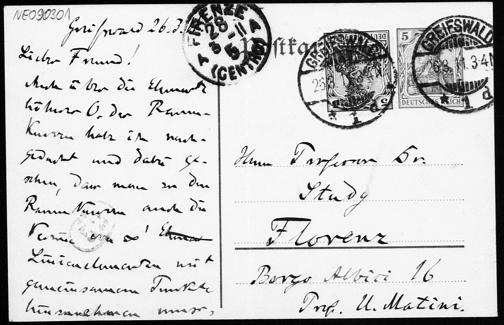 NE090301
Greifswald 26.3.
Lieber Freund!
Auch über die Elemente
höherer O. der Raum-
Kurven habe ich nach-
gedacht und dabei ge-
sehen, dass man zu den
Raum Kurven auch die
Linienelementen mit
gemeinsamem Punkte
hinzunehmen muss,
FIRENZE
28
3-11
5
(CENTRO)
A
A
Postkarte
GREIFSWALD
26.3.11.3-4N.
* 1 d *
5
5
DEUTSCHES REICH
GREIFSWALD
26.3.11.3-4N.
* 1 d
Herrn Professor Dr.
Study
Florenz
Borgo Albizi 16
Prof. U. Matini.